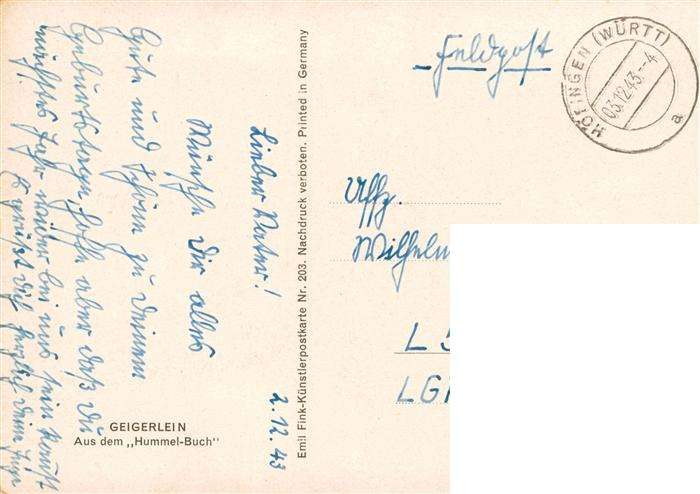 2.12.43
Lieber Vater!
Wünsche Dir alles
Gute und Schöne zu Deinem
Geburtstage, hoffe aber daß Du
nächstes Jahr wieder bei uns sein kannst
Es grüßt Dich herzlich Deine
GEIGERLEIN
Aus dem „Hummel-Buch"
Emil Fink-Künstlerpostkarte Nr. 203. Nachdruck verboten. Printed in Germany
Feldpost
HÖFINGEN (WÜRTT)
03.12.43.-4
a
Uffz.
Wilhelm
L 5
LG